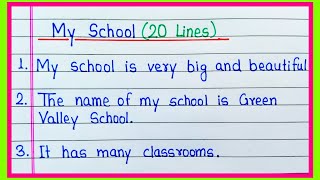 My School (20 Lines)
1. My school is very big and beautiful
2. The name of my school is Green
Valley School.
3. It has many classrooms.